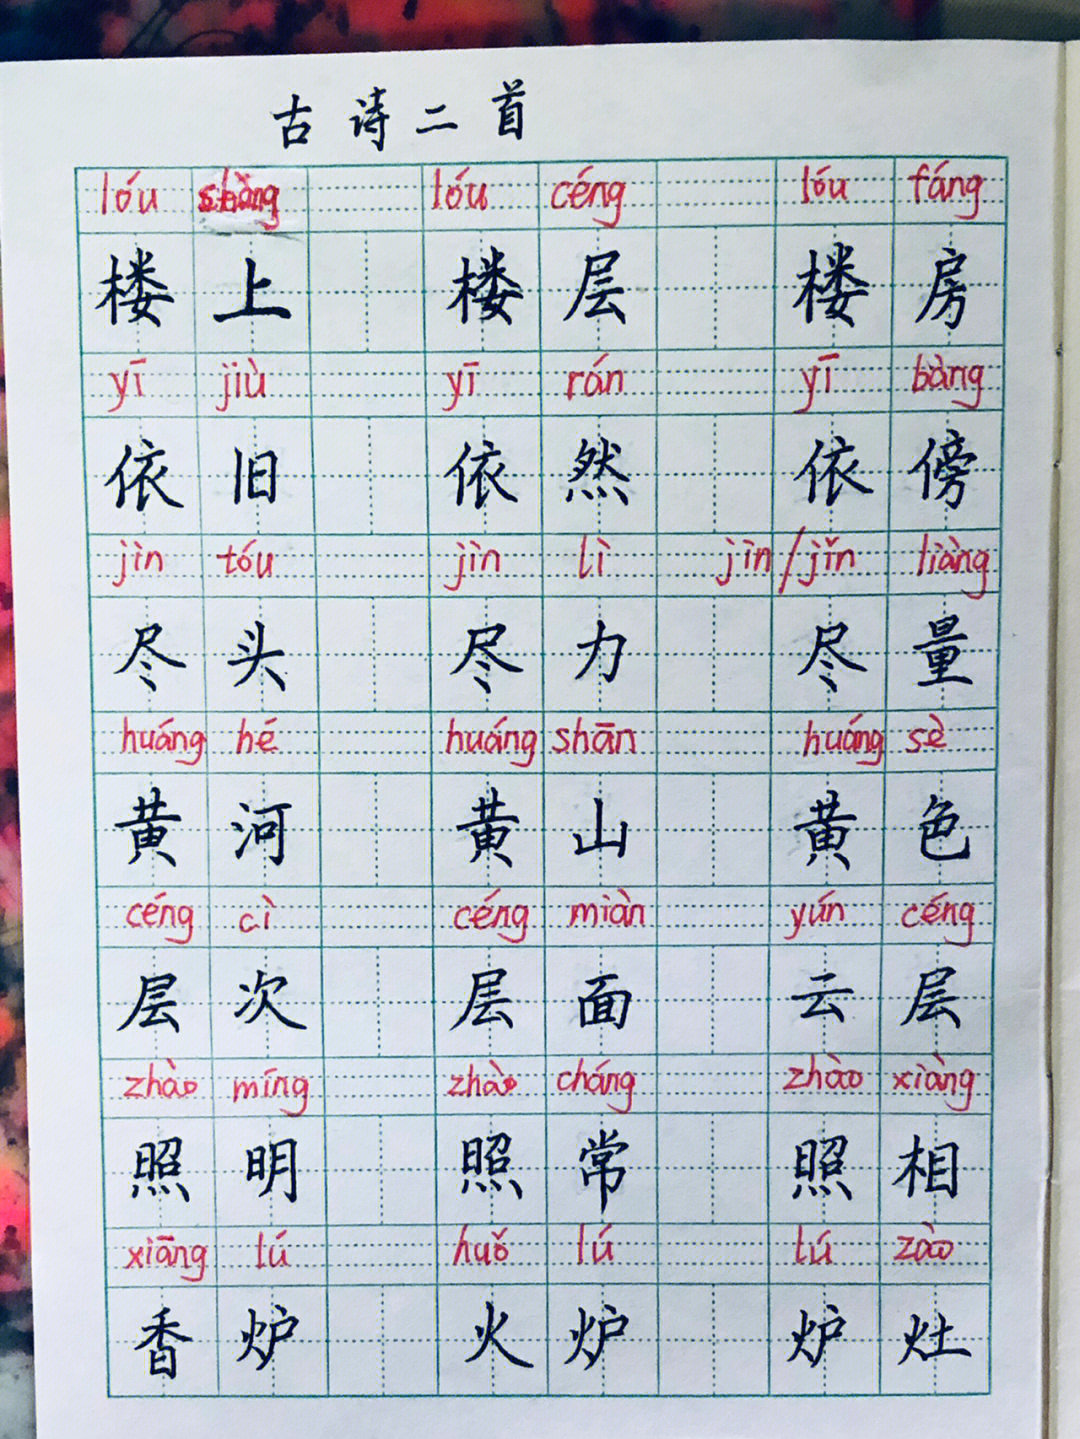 古诗二首
lóu shàng lóu céng lóu fáng
楼上 楼层 楼房
yī jiù yī rán yī bàng
依旧 依然 依傍
jìn tóu jìn lì jìn/jǐn liàng
尽头 尽力 尽量
huáng hé huáng shān huáng sè
黄河 黄山 黄色
céng cì céng miàn yún céng
层次 层面 云层
zhào míng zhào cháng zhào xiàng
照明 照常 照相
xiāng lú huǒ lú lú zào
香炉 火炉 炉灶